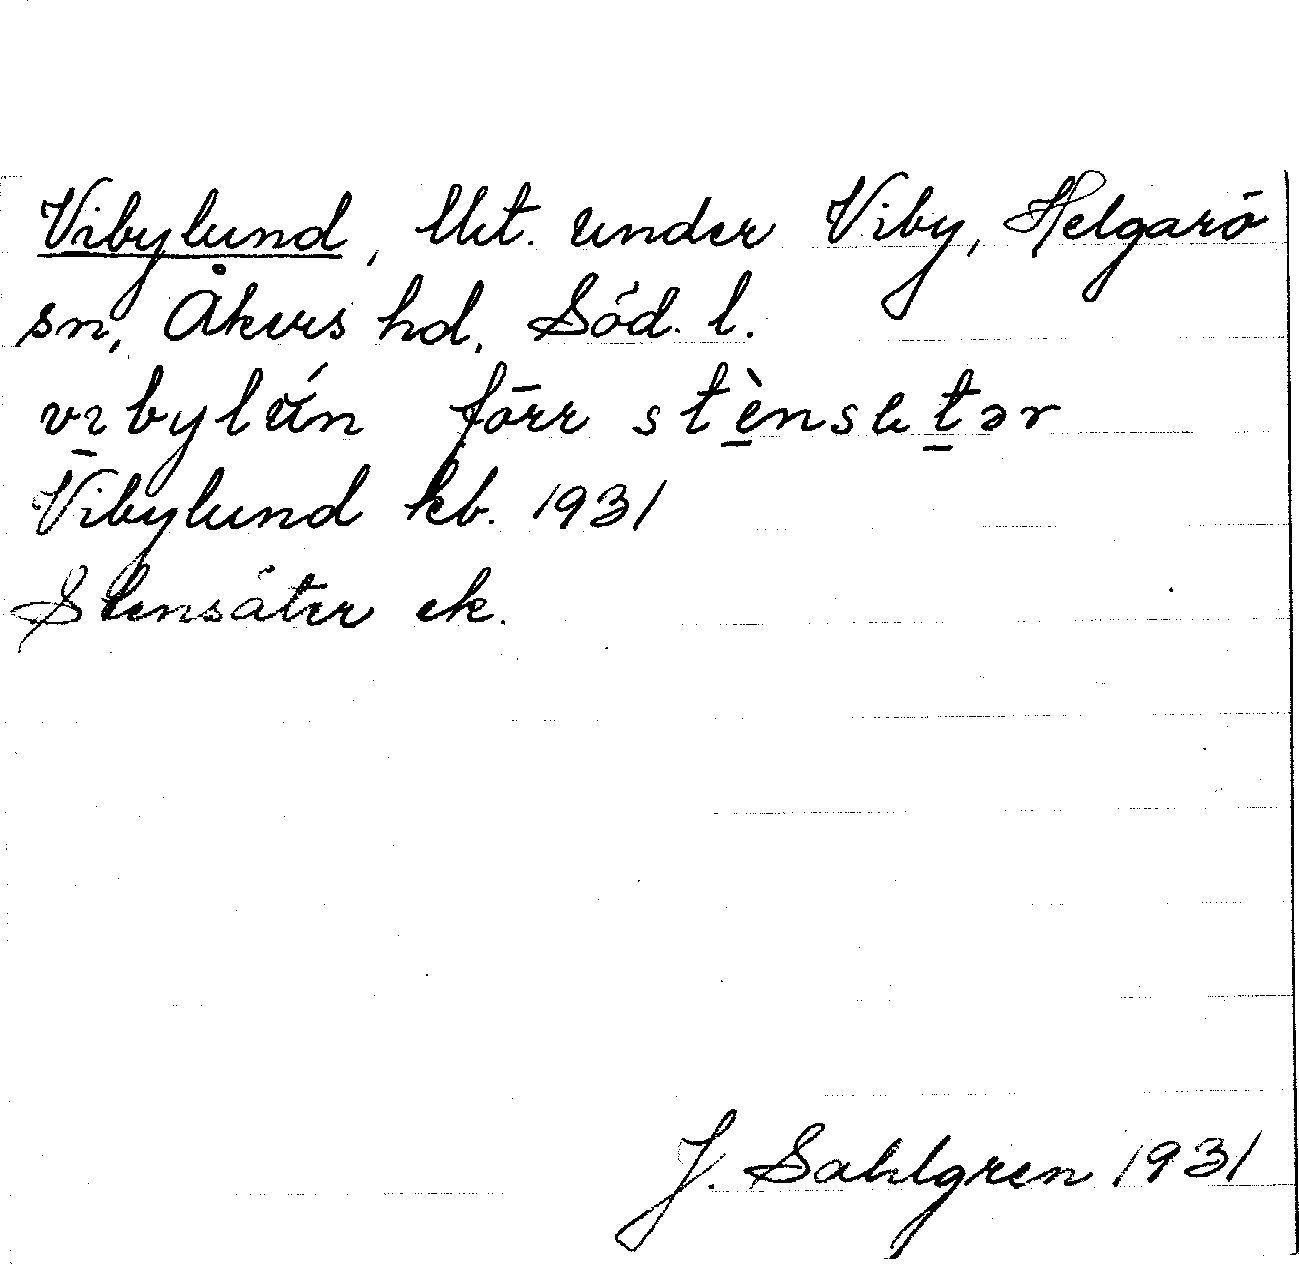 Vibylund, lht. under Viby, Helgarö
sn, Åkers hd, Söd. l.
vɩbylún förr stènsetər
Vibylund kb. 1931
Stensäter ek.
J. Sahlgren 1931